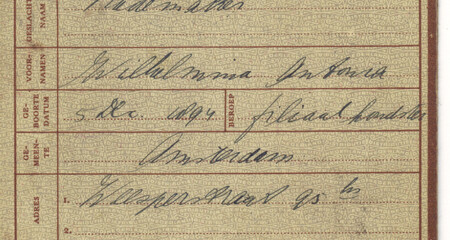 GESLACHTS
NAAM
Rademaker
VOOR-
NAMEN
Wilhelmina Antonia
GE-
BOORTE
DATUM
5 Dec. 1894
BEROEP
filiaal houdster
GE-
MEEN-
TE
Amsterdam
ADRES
1. Weesperstraat 95 hs
2.